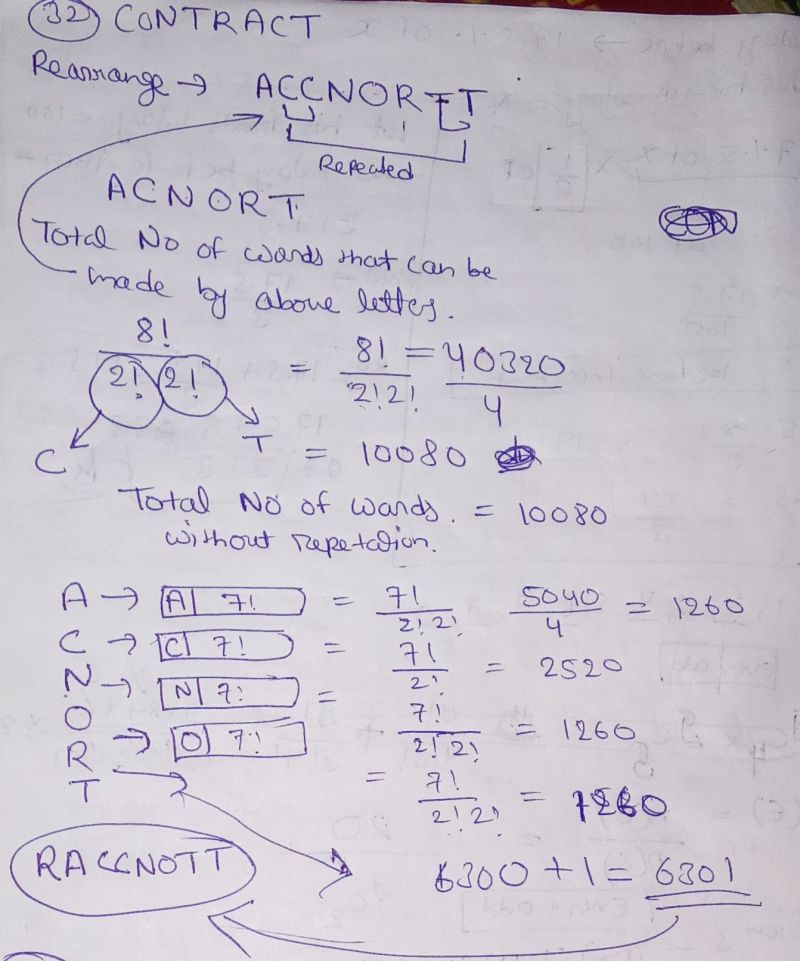 32 CONTRACT
Rearrange → ACCNORTT
Repeated
ACNORT
Total No of words that can be
made by above letters.
8! / 2! 2! = 8! / 2! 2! = 40320 / 4
C T = 10080
Total No of words. = 10080
without repetation.
A → A 7! = 7! / 2! 2! 5040 / 4 = 1260
C → C 7! = 7! / 2! = 2520
N → N 7! = 7! / 2! 2! = 1260
O → O 7! = 7! / 2! 2! = 1260
R
T
RACCNOTT 6300 + 1 = 6301